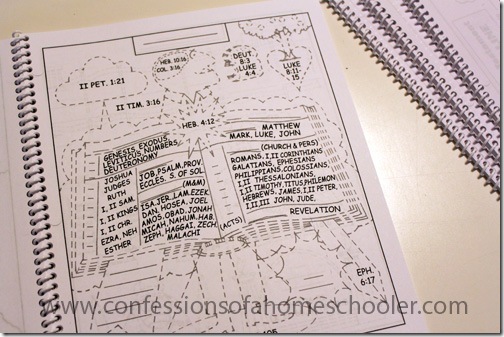 HEB. 10:16
COL. 3:16
DEUT.
8:3
LUKE
4:4
LUKE
8:11
II PET. 1:21
II TIM. 3:16
HEB. 4:12
GENESIS, EXODUS,
LEVITICUS NUMBERS,
DEUTERONOMY
JOSHUA
JUDGES
RUTH
I, II SAM.
I, II KINGS
I, II CHR.
EZRA, NEH
ESTHER
JOB, PSALM, PROV.
ECCLES. S. OF SOL.
(M&M)
ISA, JER., LAM, EZEK.
DAN, HOSEA, JOEL
AMOS, OBAD, JONAH
MICAH, NAHUM, HAB.
ZEPH, HAGGAI, ZECH,
MALACHI
MATTHEW
MARK, LUKE, JOHN
(CHURCH & PERS)
ROMANS, I,II CORINTHIANS
GALATIANS, EPHESIANS
PHILIPPIANS, COLOSSIANS,
I,II THESSALONIANS,
I,II TIMOTHY, TITUS, PHILEMON
HEBREWS, JAMES, I,II PETER,
I,II,III JOHN, JUDE,
REVELATION
(ACTS)
EPH.
6:17
www.confessionsofahomeschooler.com